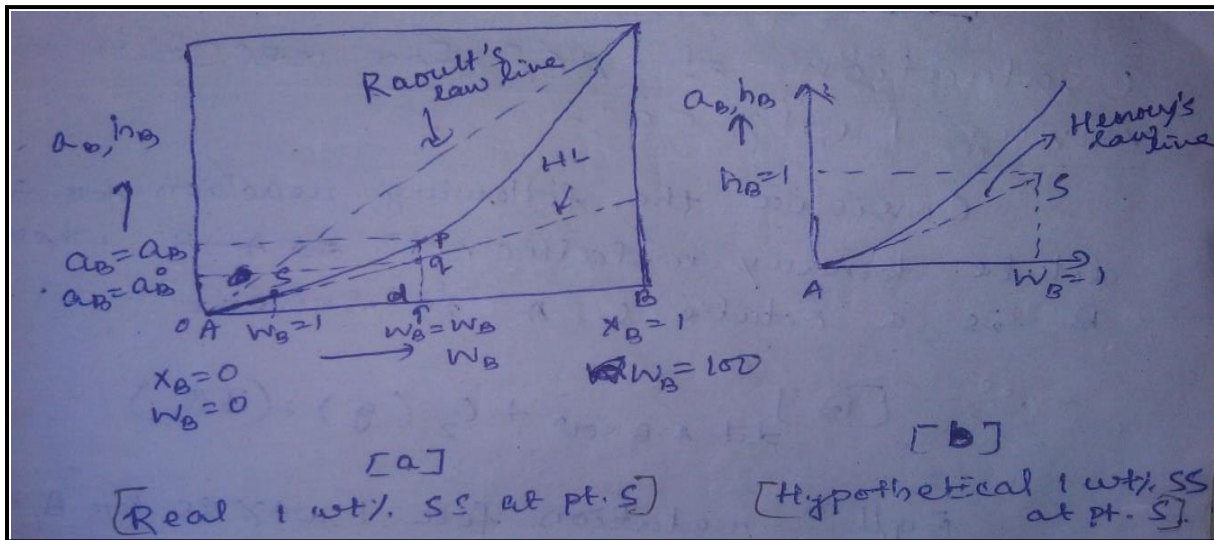 Raoult's
law line
HL
a_B, h_B
a_B = a_B
a_B = a°_B
S
P
q
d
0 A
W_B = 1
W_B = W_B
B
W_B
X_B = 1
X_B = 0
W_B = 100
W_B = 0
[a]
[Real 1 wt% SS at pt. S]
a_B, h_B
Henry's
law line
h_B = 1
S
A
W_B = 1
[b]
[Hypothetical 1 wt% SS
at pt. S]